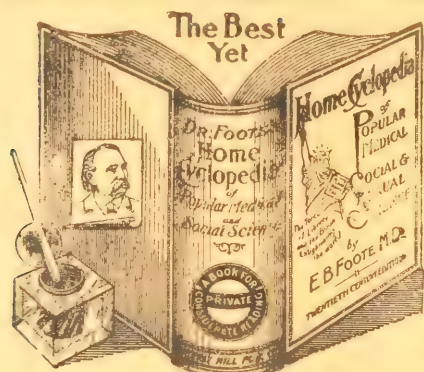 The Best
Yet
DR. FOOTE'S
Home
Cyclopedia
of
Popular Medical
and
Social Science
A BOOK FOR
PRIVATE
CONSIDERATE READING
HILL
Home Cyclopedia
of
POPULAR
MEDICAL
SOCIAL &
SEXUAL
SCIENCE
by
E. B. FOOTE M.D.
TWENTIETH CENTURY EDITION